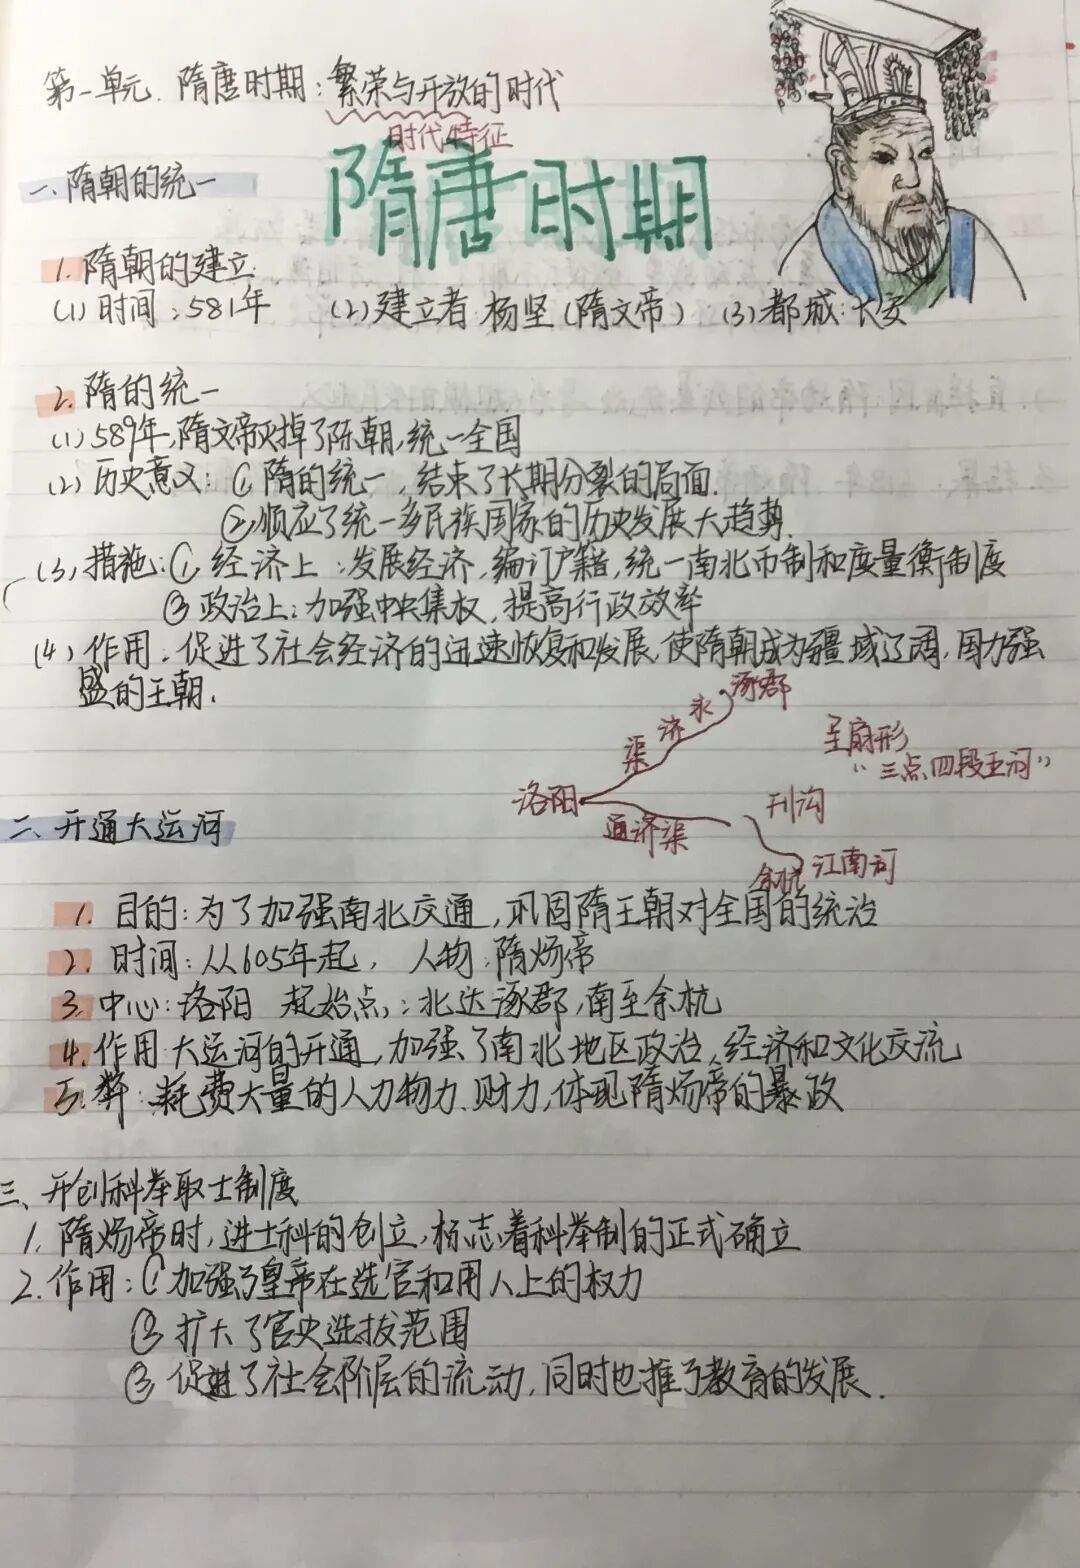 第一单元.隋唐时期:繁荣与开放的时代
时代特征
隋唐时期
一、隋朝的统一
1.隋朝的建立
(1)时间:581年 (2)建立者:杨坚(隋文帝) (3)都城:长安
2.隋的统一
(1)589年,隋文帝灭掉了陈朝,统一全国
(2)历史意义:①隋的统一,结束了长期分裂的局面.
②顺应了统一多民族国家的历史发展大趋势.
(3)措施:①经济上:发展经济,编订户籍,统一南北币制和度量衡制度
②政治上:加强中央集权,提高行政效率
(4)作用:促进了社会经济的迅速恢复和发展,使隋朝成为疆域辽阔,国力强
盛的王朝.
涿郡
永济渠
呈扇形
“三点四段五河”
洛阳
通济渠
刊沟
江南河
余杭
二、开通大运河
1.目的:为了加强南北交通,巩固隋王朝对全国的统治
2.时间:从605年起, 人物:隋炀帝
3.中心:洛阳 起始点:北达涿郡,南至余杭
4.作用:大运河的开通,加强了南北地区政治,经济和文化交流
5.弊:耗费大量的人力物力.财力,体现隋炀帝的暴政
三、开创科举取士制度
1.隋炀帝时,进士科的创立,标志着科举制的正式确立
2.作用:①加强了皇帝在选官和用人上的权力
②扩大了官史选拔范围
③促进了社会阶层的流动,同时也推了教育的发展.